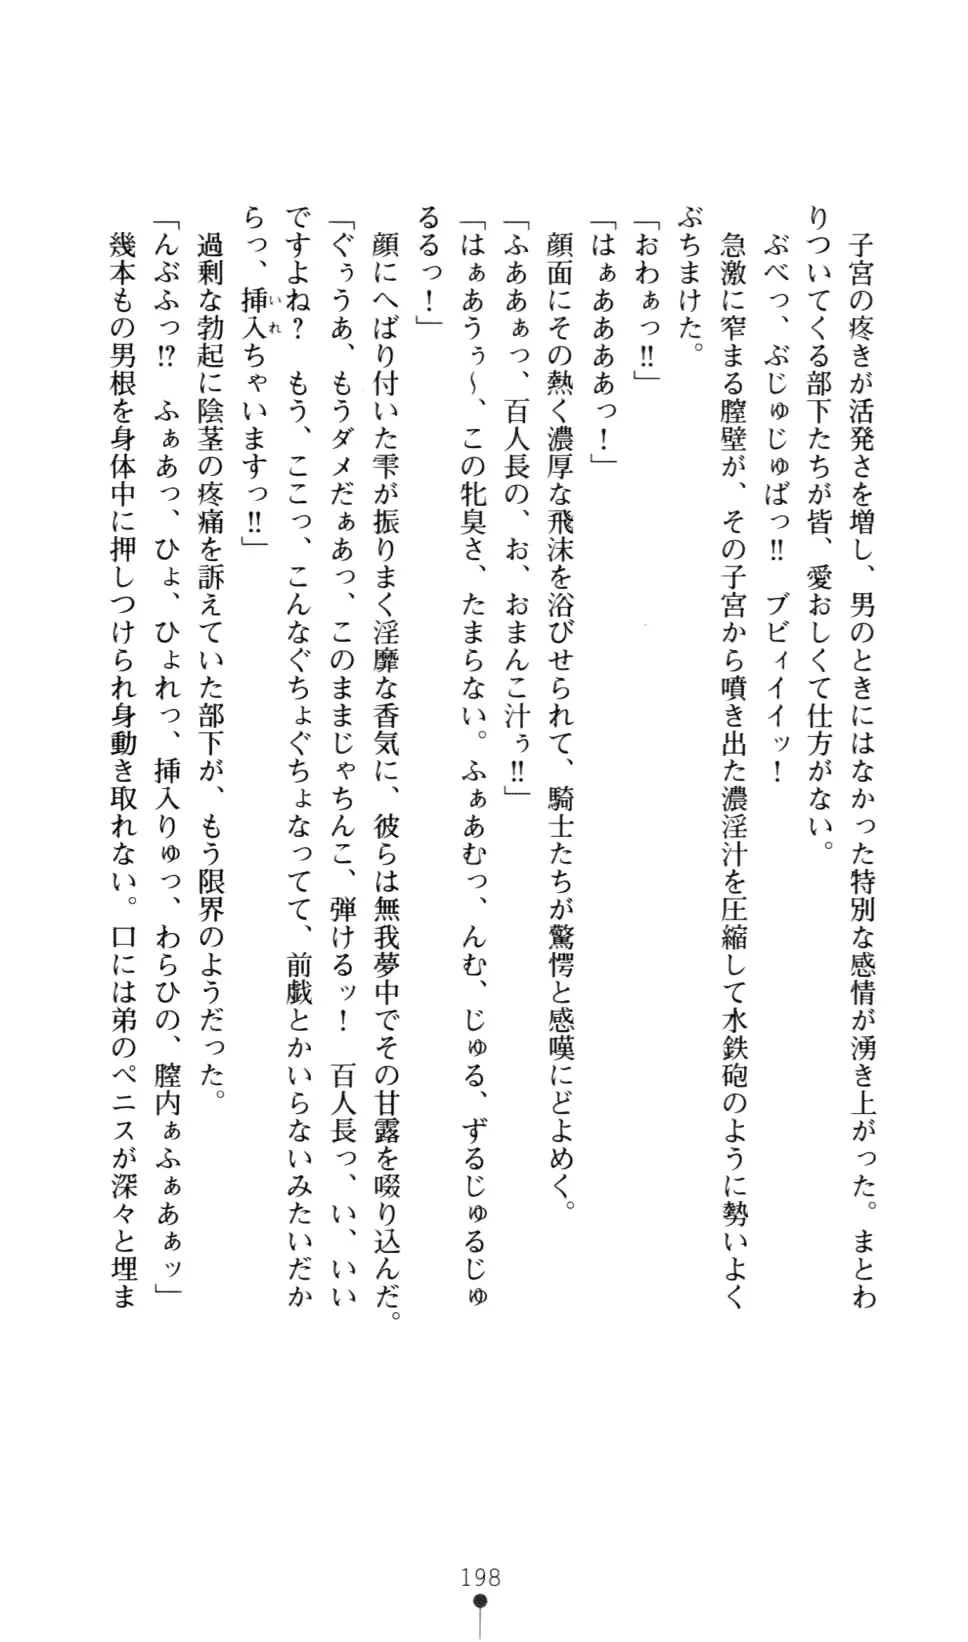 子宮の疼きが活発さを増し、男のときにはなかった特別な感情が湧き上がった。まとわ
りついてくる部下たちが皆、愛おしくて仕方がない。
ぶべっ、ぶじゅじゅばっ!! ブビィイイッ！
急激に窄まる膣壁が、その子宮から噴き出た濃淫汁を圧縮して水鉄砲のように勢いよく
ぶちまけた。
「おわぁっ!!」
「はぁああああっ！」
顔面にその熱く濃厚な飛沫を浴びせられて、騎士たちが驚愕と感嘆にどよめく。
「ふああぁっ、百人長の、お、おまんこ汁ぅ!!」
「はぁあうぅ～、この牝臭さ、たまらない。ふぁあむっ、んむ、じゅる、ずるじゅるじゅ
るるっ！」
顔にへばり付いた雫が振りまく淫靡な香気に、彼らは無我夢中でその甘露を啜り込んだ。
「ぐぅうあ、もうダメだぁあっ、このままじゃちんこ、弾けるッ！ 百人長っ、い、いい
ですよね？ もう、ここっ、こんなぐちょぐちょなってて、前戯とかいらないみたいだか
らっ、挿入いれちゃいますっ!!」
過剰な勃起に陰茎の疼痛を訴えていた部下が、もう限界のようだった。
「んぶふっ!? ふぁあっ、ひょ、ひょれっ、挿入りゅっ、わらひの、膣内ぁふぁあぁッ」
幾本もの男根を身体中に押しつけられ身動き取れない。口には弟のペニスが深々と埋ま
198